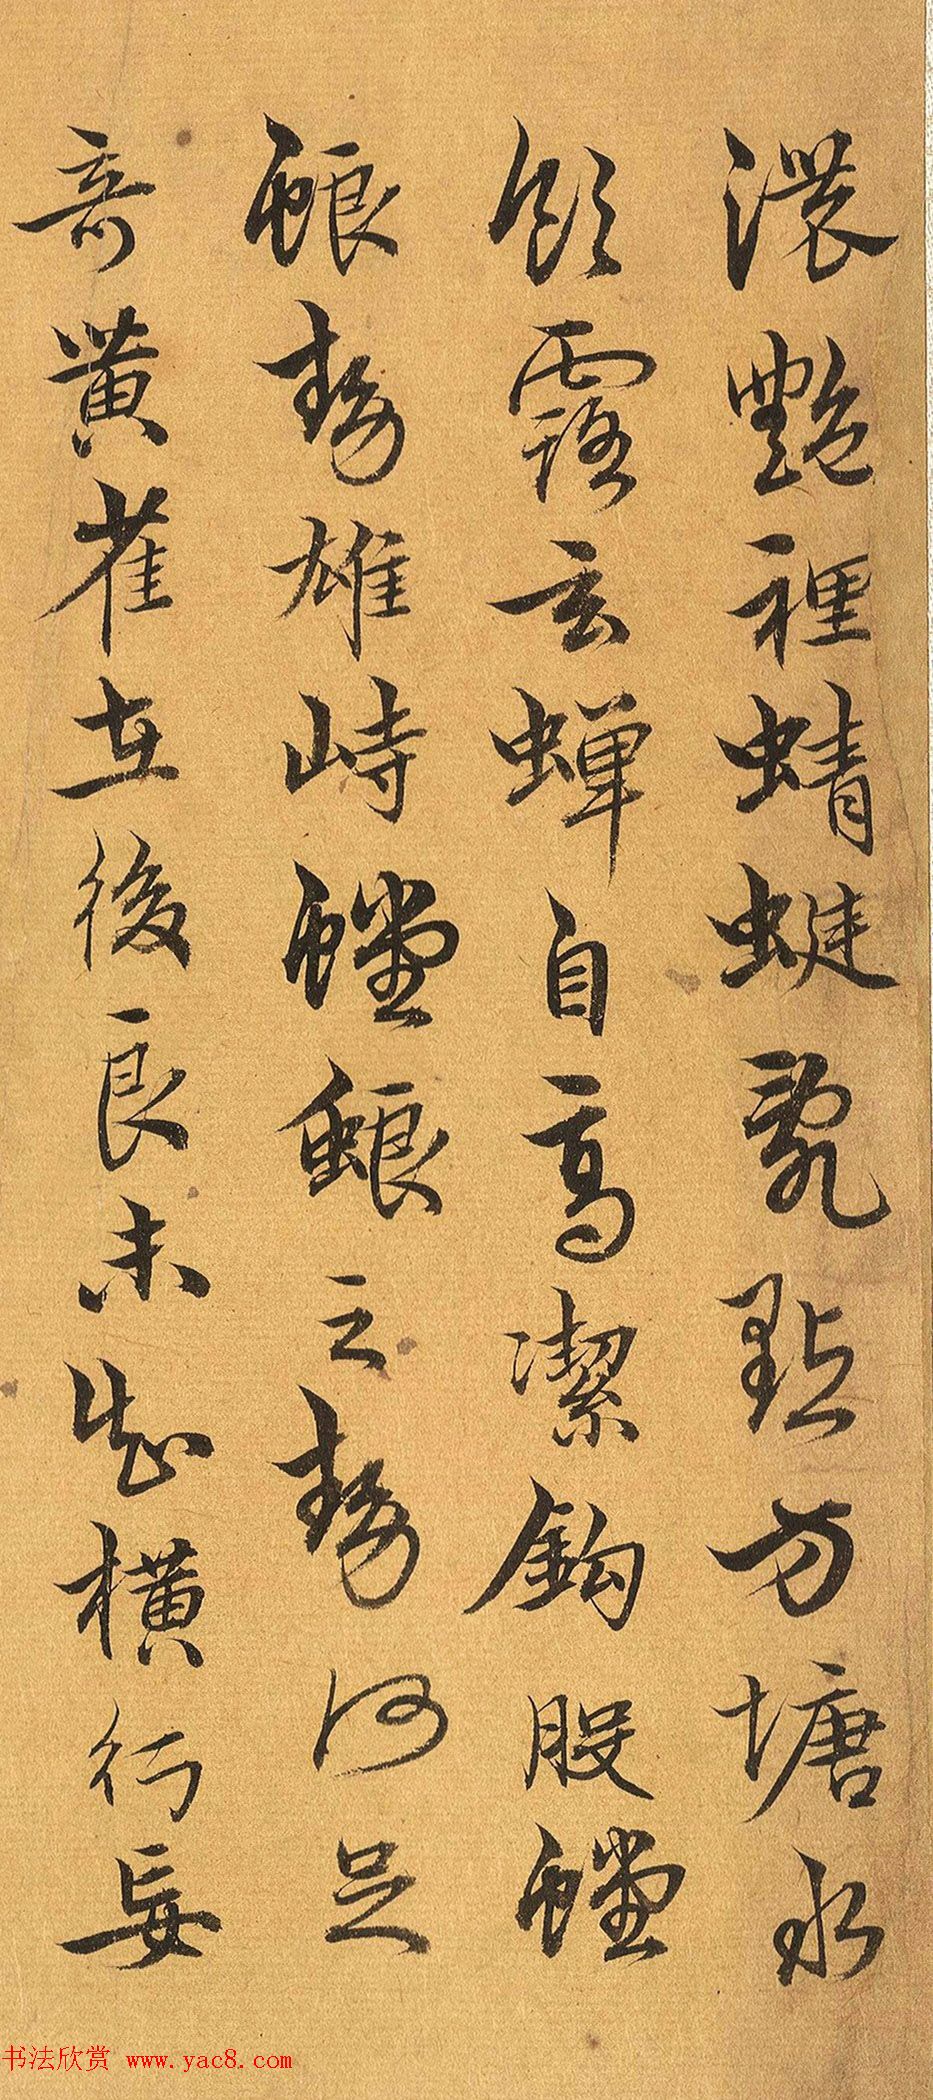 濃艷裡蜻蜓亂點方塘水
飲露玄蟬自高潔鉤股螳
螂勢雄峙螳螂之勢何足
奇黃雀在後良未知橫行妄
书法欣赏 www.yac8.com